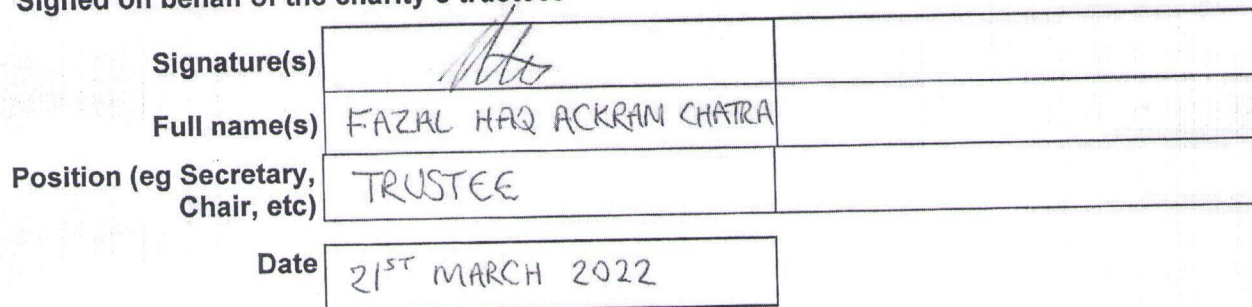 Signed on behalf of the charity's trustees
Signature(s)
Full name(s) FAZAL HAQ ACKRAM CHATRA
Position (eg Secretary,
Chair, etc) TRUSTEE
Date 21ST MARCH 2022